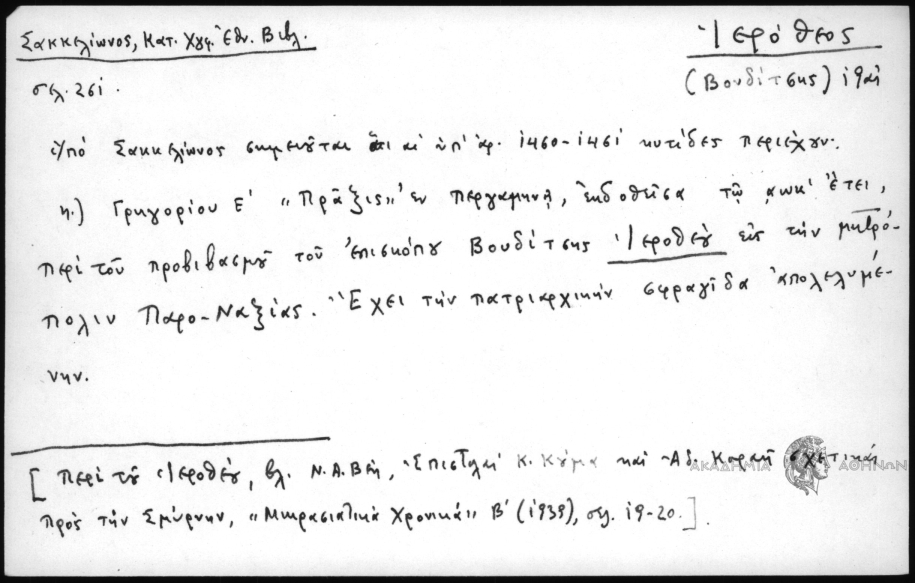 Σακκελίωνος, Κατ. Χγφ. Ἐθν. Βιβλ.
Ἱερόθεος
σελ. 251.
(Βουδίτσης) 19αἰ
Ὑπὸ Σακκελίωνος σημειοῦται ὅτι αἱ ὑπ' ἀρ. 1450-1451 κυτίδες περιέχουν:
η.) Γρηγορίου Ε' "Πρᾶξις" ἐν περγαμηνῇ, ἐκδοθεῖσα τῷ αωκ' ἔτει,
περὶ τοῦ προβιβασμοῦ τοῦ ἐπισκόπου Βουδίτσης Ἱεροθέου εἰς τὴν μητρό-
πολιν Παρο-Ναξίας. Ἔχει τὴν πατριαρχικὴν σφραγῖδα ἀπολελυμέ-
νην.
[Περὶ τοῦ Ἱεροθέου, βλ. Ν. Α. Βέη, Ἐπιστολαὶ Κ. Κύμα καὶ Ἀδ. Κοραῆ σχετικαὶ
πρὸς τὴν Σμύρνην, "Μικρασιατικὰ Χρονικά" Β' (1939), σελ. 19-20.].
ΑΚΑΔΗΜΙΑ ΑΘΗΝΩΝ